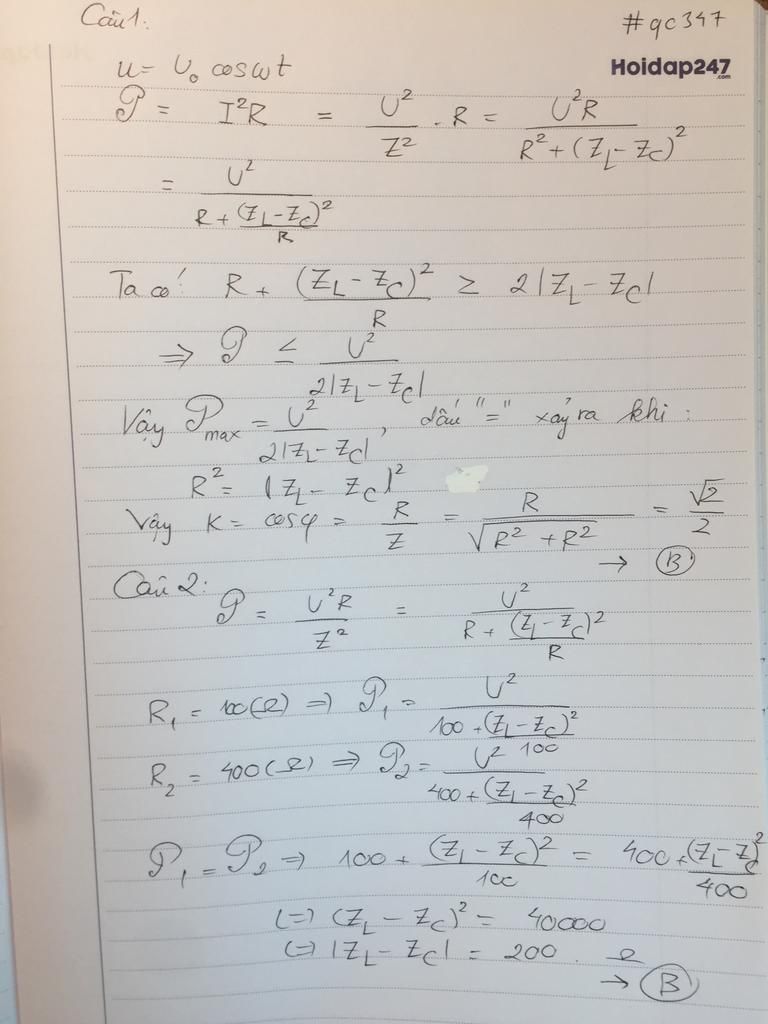 Câu 1:
#qc347
Hoidap247
.com
u = U₀ cosωt
𝒫 = I²R = U²/Z² . R = U²R/(R² + (Z_L - Z_C)²)
= U²/(R + (Z_L - Z_C)²/R)
Ta có: R + (Z_L - Z_C)²/R ≥ 2|Z_L - Z_C|
⇒ 𝒫 ≤ U²/(2|Z_L - Z_C|)
Vậy 𝒫max = U²/(2|Z_L - Z_C|), dấu "=" xảy ra khi:
R² = (Z_L - Z_C)²
Vậy K = cosφ = R/Z = R/√(R² + R²) = √2/2
→ B
Câu 2:
𝒫 = U²R/Z² = U²/(R + (Z_L - Z_C)²/R)
R₁ = 100(Ω) ⇒ 𝒫₁ = U²/(100 + (Z_L - Z_C)²/100)
R₂ = 400(Ω) ⇒ 𝒫₂ = U²/(400 + (Z_L - Z_C)²/400)
𝒫₁ = 𝒫₂ ⇒ 100 + (Z_L - Z_C)²/100 = 400 + (Z_L - Z_C)²/400
(=) (Z_L - Z_C)² = 40000
(=) |Z_L - Z_C| = 200 . Ω
→ B